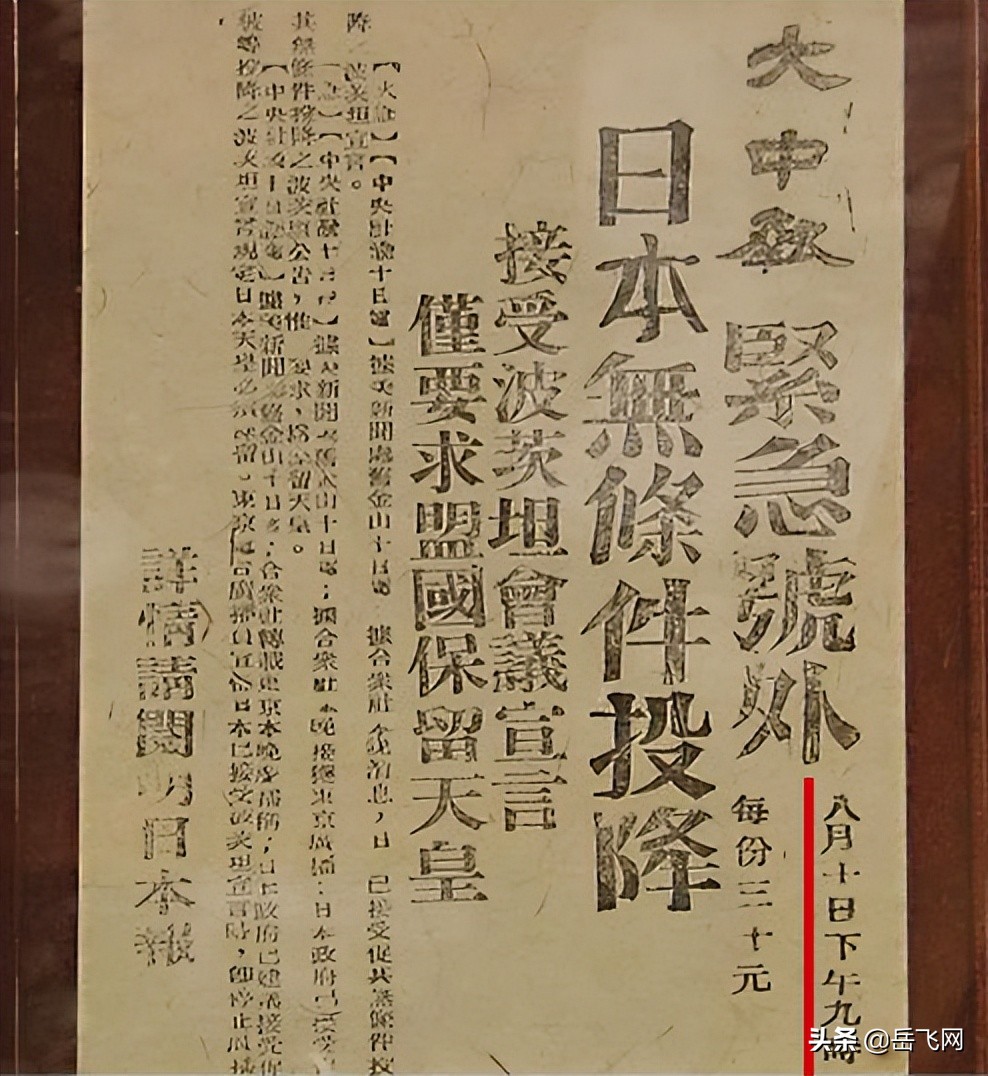 大中
緊急號外
八月十日下午九時
每份三十元
日本無條件投降
接受波茨坦會議宣言
僅要求盟國保留天皇
【火急】【中央社渝十日電】據美新聞處舊金山十日電 據合衆社 消息,日 已接受促其無條件投
降 波茨坦宣言。
【急】【中央社渝十日電】據美新聞 舊金山十日電:據合衆社 晚接獲東京廣播:日本政府已接受
其無條件投降之波茨坦公告,惟 要求, 保留天皇。
【中央社渝十日 電】據美新聞處舊金山十日電;合衆社轉載東京本晚廣播稱;日本政府已建議接受促
彼等投降之波茨坦宣言規定日本天皇必須保留。東京電台廣播員宣佈日本已接受波茨坦宣言時,即停止廣播
詳情請閱明日本報
头条 @岳飞网